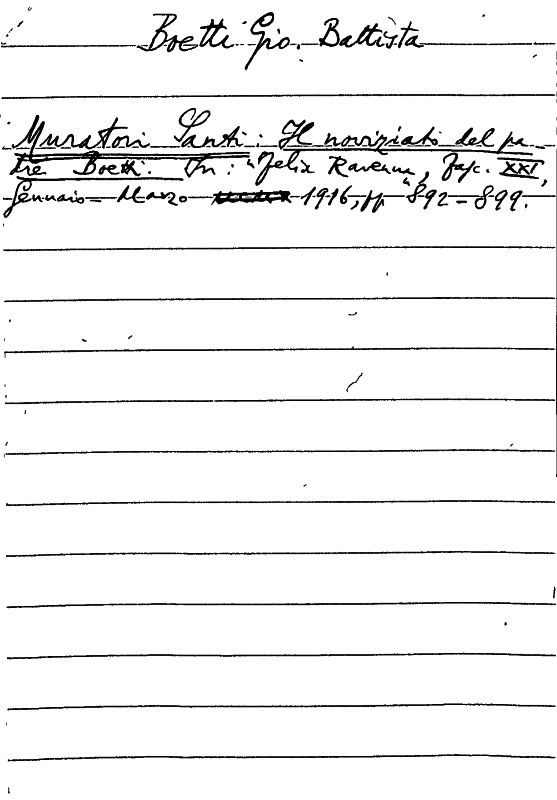 Boetti Gio. Battista
Muratori Santi: Il noviziato del pa-
dre Boetti. In: "Felix Ravenna", fasc. XXI,
Gennaio-Marzo 1916, pp 892-899.